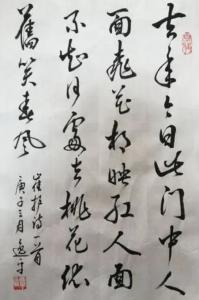 去年今日此门中人
面桃花相映红人面
不知何處去桃花依
舊笑春风
崔护诗一首
庚子三月